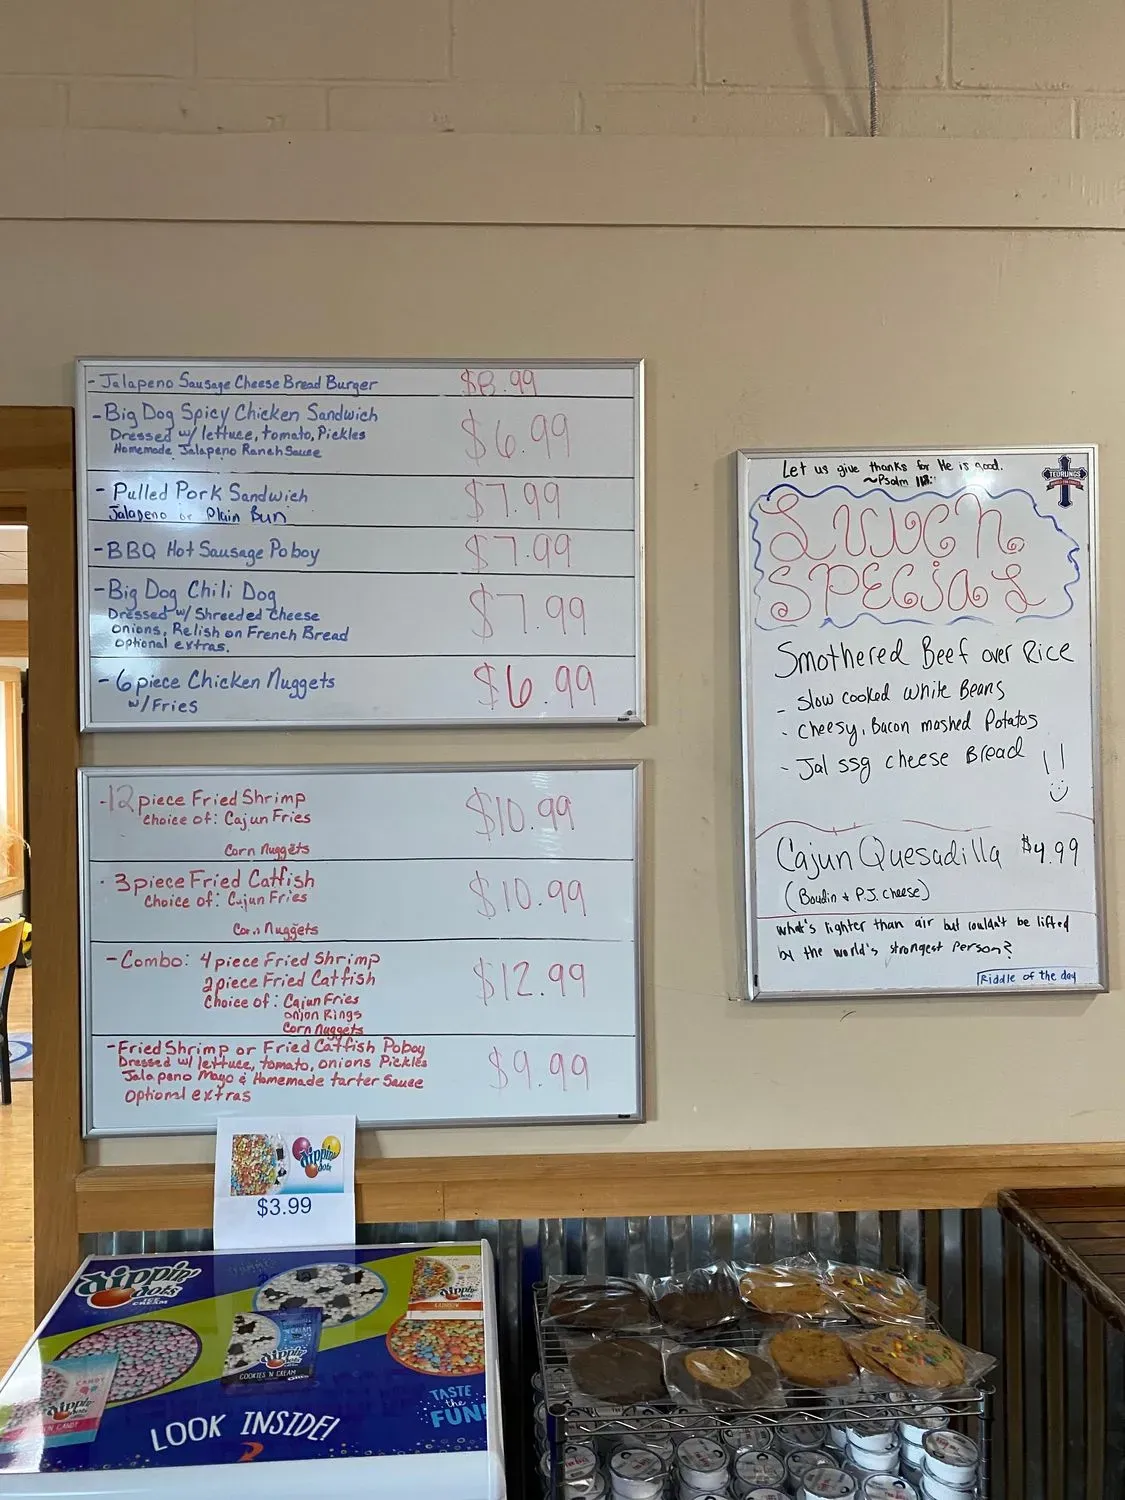 - Jalapeno Sausage Cheese Bread Burger $8.99
- Big Dog Spicy Chicken Sandwich $6.99
Dressed w/ lettuce, tomato, Pickles
Homemade Jalapeno Ranch Sauce
- Pulled Pork Sandwich $7.99
Jalapeno or Plain Bun
- BBQ Hot Sausage Poboy $7.99
- Big Dog Chili Dog $7.99
Dressed w/ Shreeded Cheese
onions, Relish on French Bread
optional extras.
- 6 piece Chicken Nuggets $6.99
w/Fries
- 12 piece Fried Shrimp $10.99
choice of: Cajun Fries
Corn Nuggets
- 3 piece Fried Catfish $10.99
choice of: Cajun Fries
Corn Nuggets
- Combo: 4 piece Fried Shrimp $12.99
2 piece Fried Catfish
Choice of: Cajun Fries
onion Rings
Corn Nuggets
- Fried Shrimp or Fried Catfish Poboy $9.99
Dressed w/ lettuce, tomato, onions Pickles
Jalapeno Mayo & Homemade tarter Sauce
Optional extras
Let us give thanks for He is good.
~Psalm
TEURLINGS
LUNCH
SPECiAL
Smothered Beef over Rice
- Slow cooked white Beans
- Cheesy, Bacon mashed Potatos
- Jal ssg cheese Bread !!
Cajun Quesadilla $4.99
(Boudin & P.J. cheese)
what's lighter than air but couldn't be lifted
by the world's strongest person?
Riddle of the day
dippin' dots
$3.99
dippin' dots
ICE CREAM
RAINBOW
dippin'
dippin' dots
COOKIES 'N CREAM
dippin' dots
TASTE
the
FUN!
LOOK INSIDE!